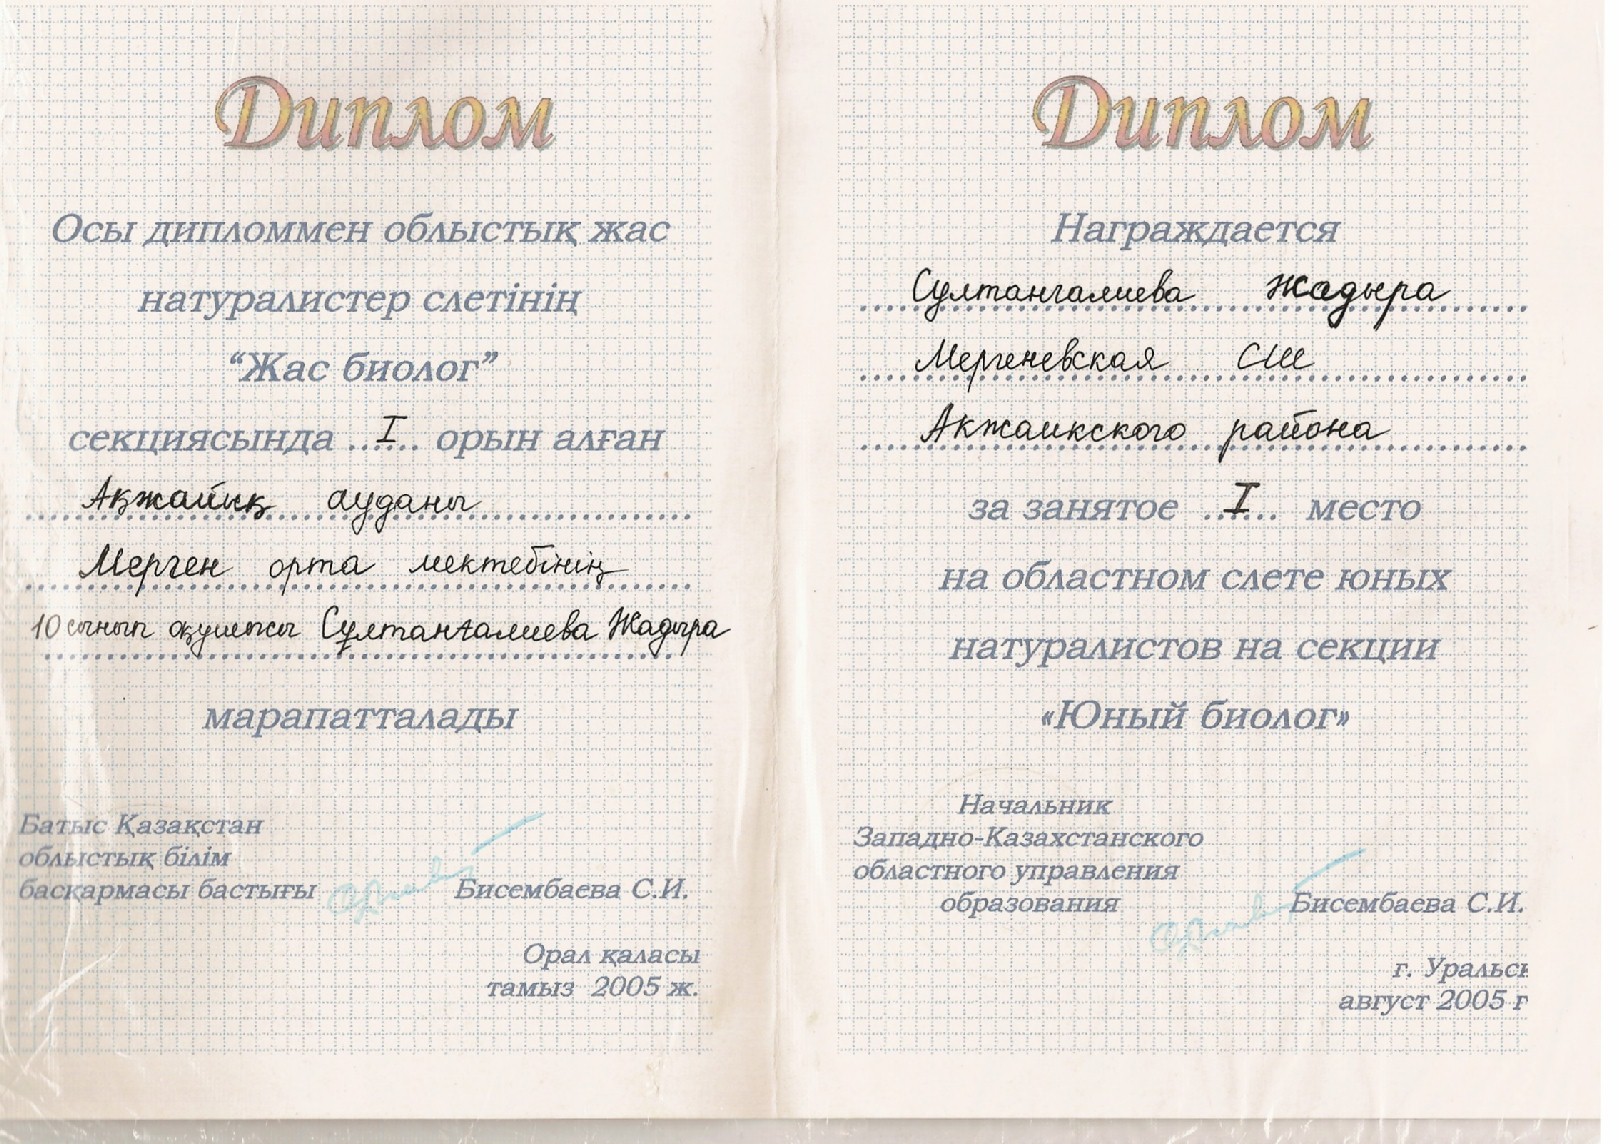 Диплом
Осы дипломмен облыстық жас
натуралистер слетінің
“Жас биолог”
секциясында ..I.. орын алған
Ақжайық ауданы
Мерген орта мектебінің
10 сынып оқушысы Сұлтанғалиева Жадыра
марапатталады
Батыс Қазақстан
облыстық білім
басқармасы бастығы Бисембаева С.И.
Орал қаласы
тамыз 2005 ж.
Диплом
Награждается
Султангалиева Жадыра
Мергеневская СШ
Акжаикского района
за занятое ..I.. место
на областном слете юных
натуралистов на секции
«Юный биолог»
Начальник
Западно-Казахстанского
областного управления
образования Бисембаева С.И.
г. Уральск
август 2005 г